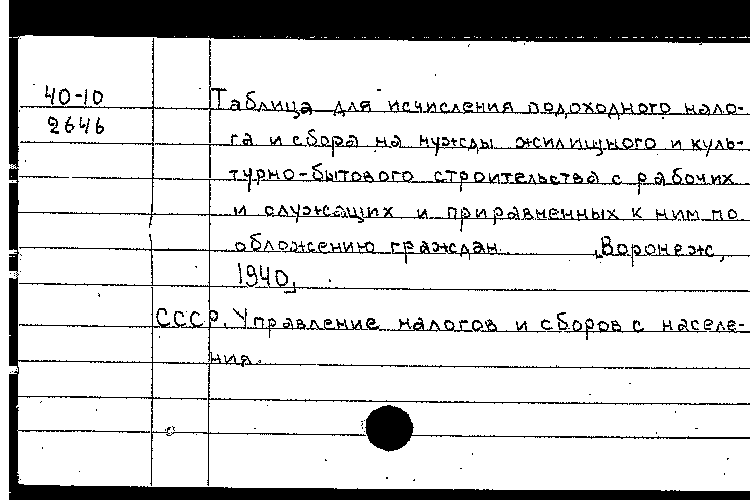 40-10
2646
Таблица для исчисления подоходного нало-
га и сбора на нужды жилищного и куль-
турно-бытового строительства с рабочих
и служащих и приравненных к ним по
обложению граждан. [Воронеж,
1940]
СССР. Управление налогов и сборов с населе-
ния.